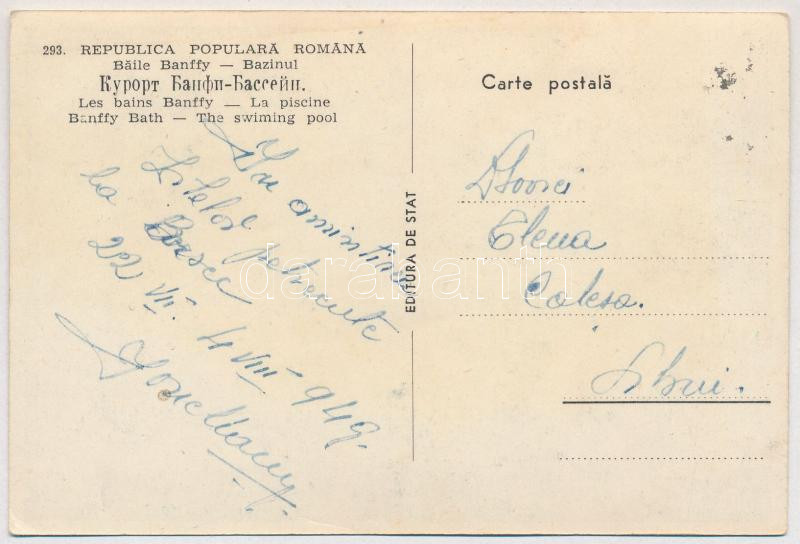 293. REPUBLICA POPULARĂ ROMÂNĂ
Băile Banffy — Bazinul
Курорт Банфи-Бассейн.
Les bains Banffy — La piscine
Banffy Bath — The swiming pool
Carte postală
EDITURA DE STAT
În amintirea
Zilelor petrecute
la Borsec
22 VII. 4 VIII 949.
Elena
Sibiu.
darabanth